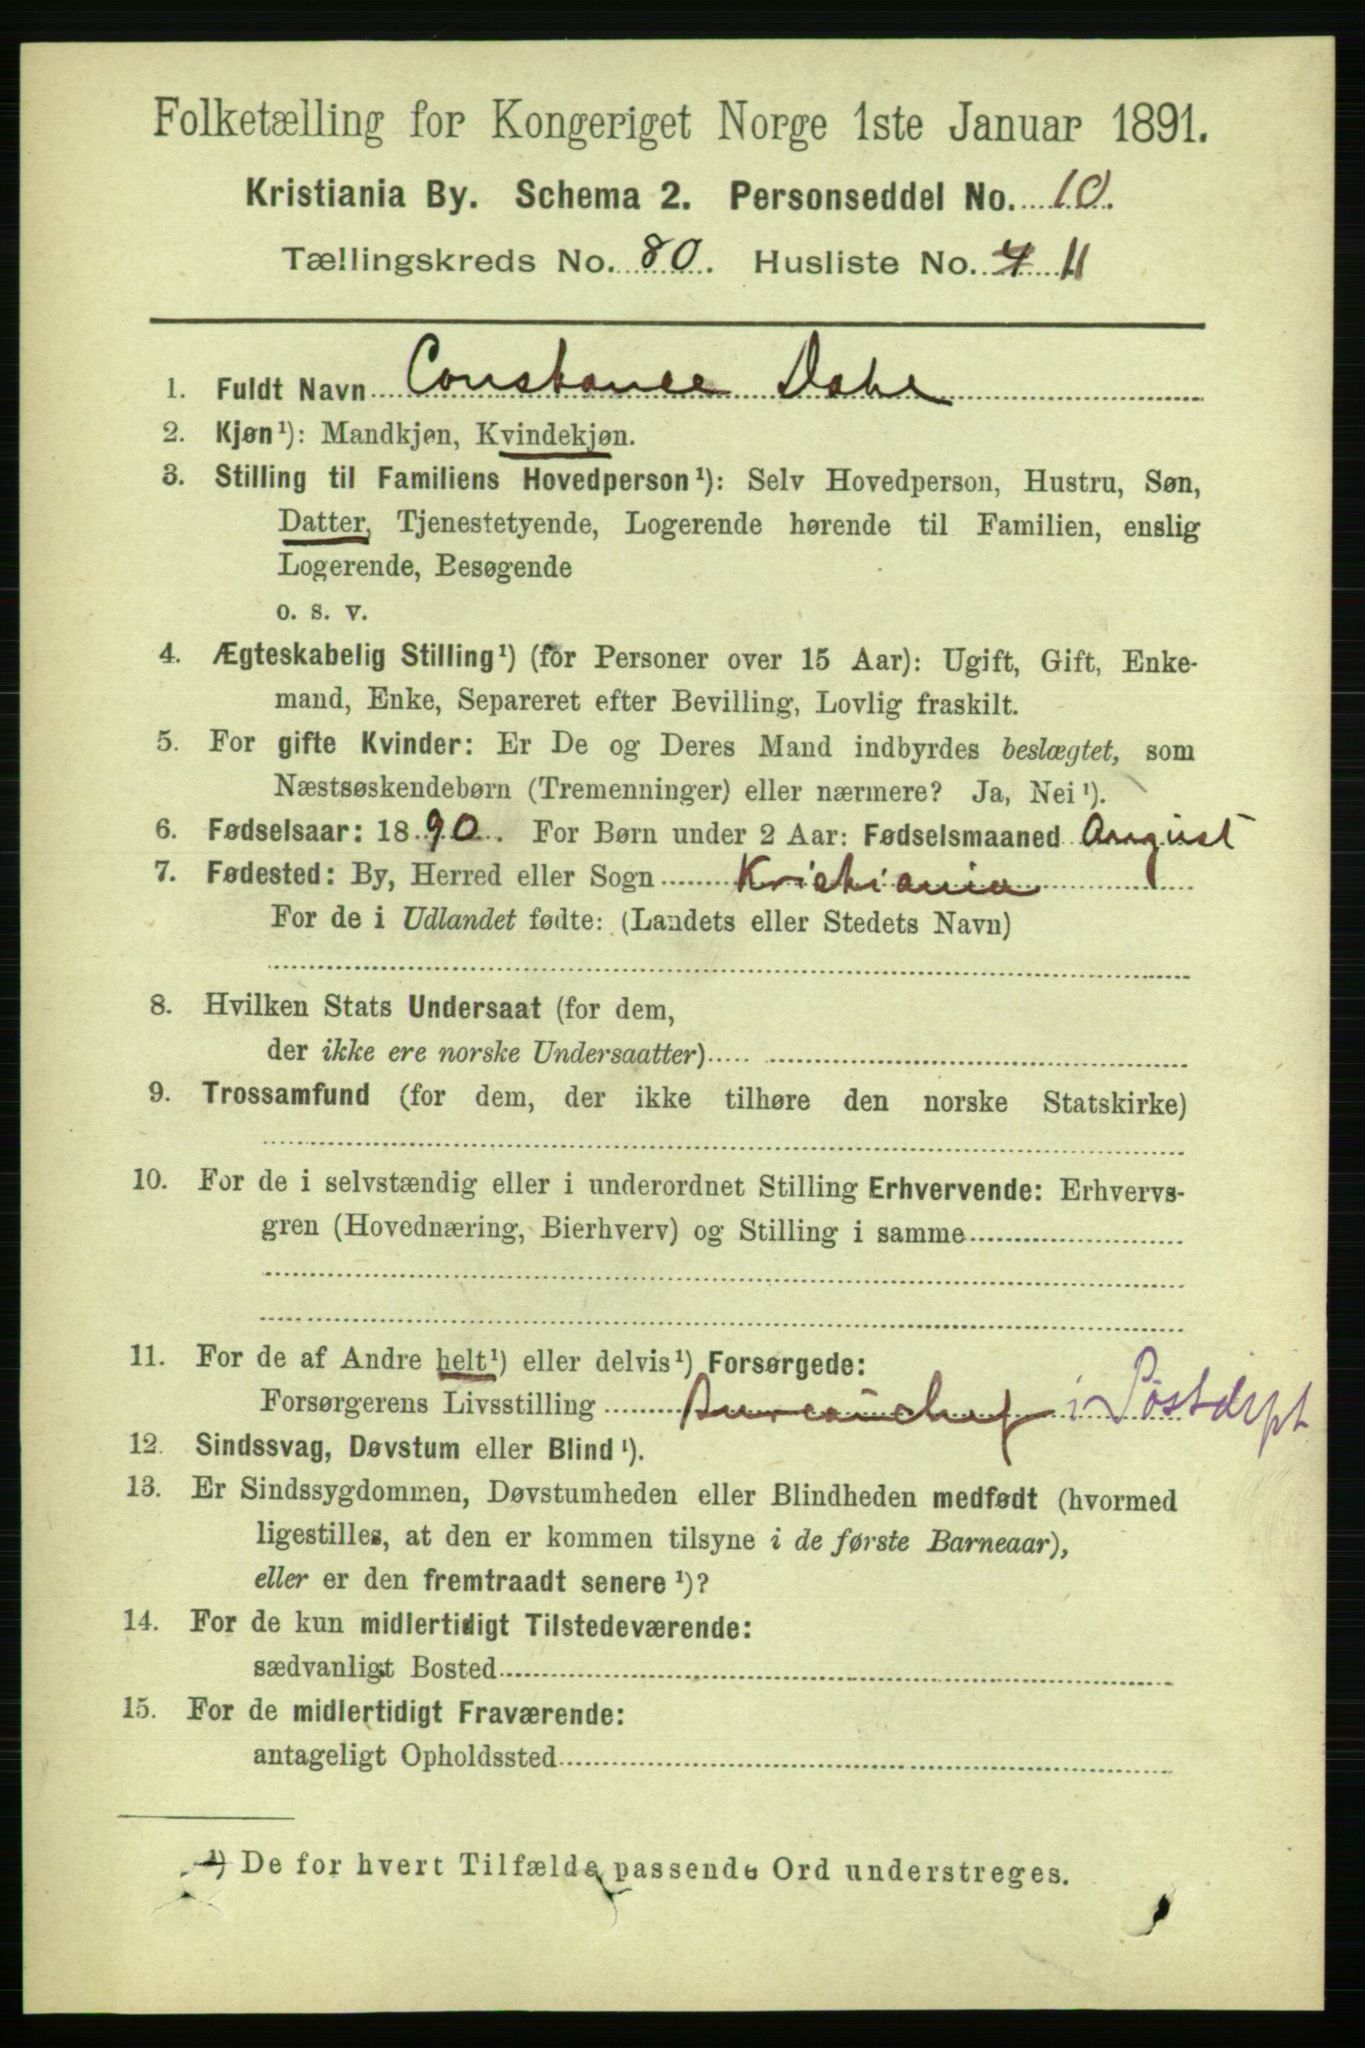 Folketælling for Kongeriget Norge 1ste Januar 1891.
Kristiania By. Schema 2. Personseddel No. 10.
Tællingskreds No. 80. Husliste No. 11
1. Fuldt Navn Constance Dahl
2. Kjøn¹): Mandkjøn, Kvindekjøn.
3. Stilling til Familiens Hovedperson¹): Selv Hovedperson, Hustru, Søn,
Datter, Tjenestetyende, Logerende hørende til Familien, enslig
Logerende, Besøgende
o. s. v.
4. Ægteskabelig Stilling¹) (for Personer over 15 Aar): Ugift, Gift, Enke-
mand, Enke, Separeret efter Bevilling, Lovlig fraskilt.
5. For gifte Kvinder: Er De og Deres Mand indbyrdes beslægtet, som
Næstsøskendebørn (Tremenninger) eller nærmere? Ja, Nei¹).
6. Fødselsaar: 1890. For Børn under 2 Aar: Fødselsmaaned August
7. Fødested: By, Herred eller Sogn Kristiania
For de i Udlandet fødte: (Landets eller Stedets Navn)
8. Hvilken Stats Undersaat (for dem,
der ikke ere norske Undersaatter)
9. Trossamfund (for dem, der ikke tilhøre den norske Statskirke)
10. For de i selvstændig eller i underordnet Stilling Erhvervende: Erhvervs-
gren (Hovednæring, Bierhverv) og Stilling i samme
11. For de af Andre helt¹) eller delvis¹) Forsørgede:
Forsørgerens Livsstilling Bureauchef i Postdept
12. Sindssvag, Døvstum eller Blind¹).
13. Er Sindssygdommen, Døvstumheden eller Blindheden medfødt (hvormed
ligestilles, at den er kommen tilsyne i de første Barneaar),
eller er den fremtraadt senere¹)?
14. For de kun midlertidigt Tilstedeværende:
sædvanligt Bosted
15. For de midlertidigt Fraværende:
antageligt Opholdssted
¹) De for hvert Tilfælde passende Ord understreges.